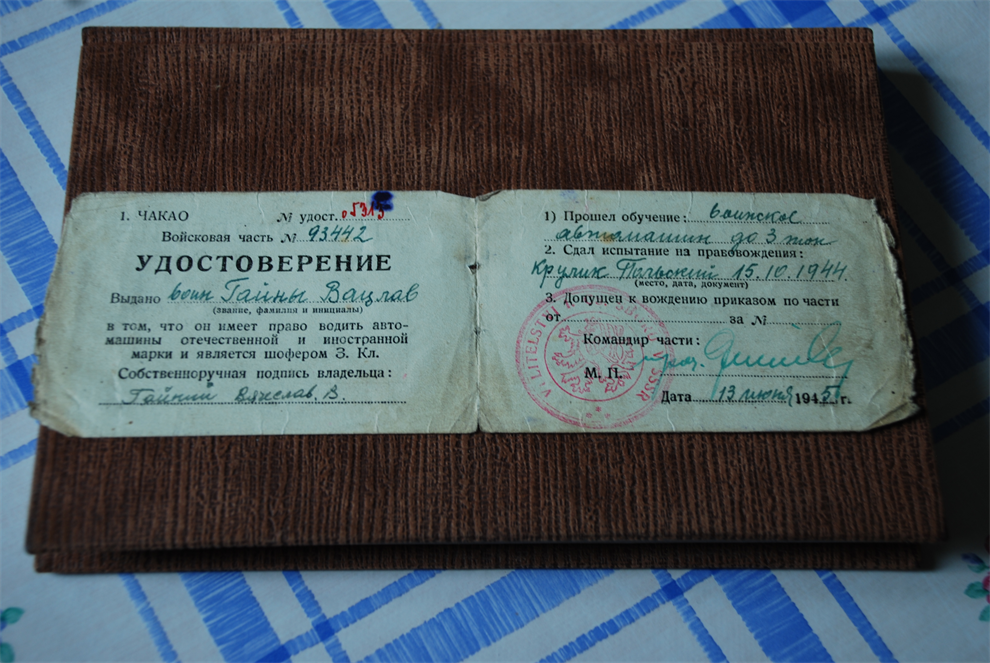 1. ЧАКАО № удост. 05315
Войсковая часть № 93442
УДОСТОВЕРЕНИЕ
Выдано воин Гайны Вацлав
(звание, фамилия и инициалы)
в том, что он имеет право водить авто-
машины отечественной и иностранной
марки и является шофером 3. Кл.
Собственноручная подпись владельца:
Гайный Вячеслав. В.
1) Прошел обучение: воинское
автомашин до 3 тон
2. Сдал испытание на правовождения:
Крулик Польский 15.10.1944.
(место, дата, документ)
3. Допущен к вождению приказом по части
от за №
Командир части:
М. П.
Дата 13 июня 1945 г.
VELITELSTVO SSSR